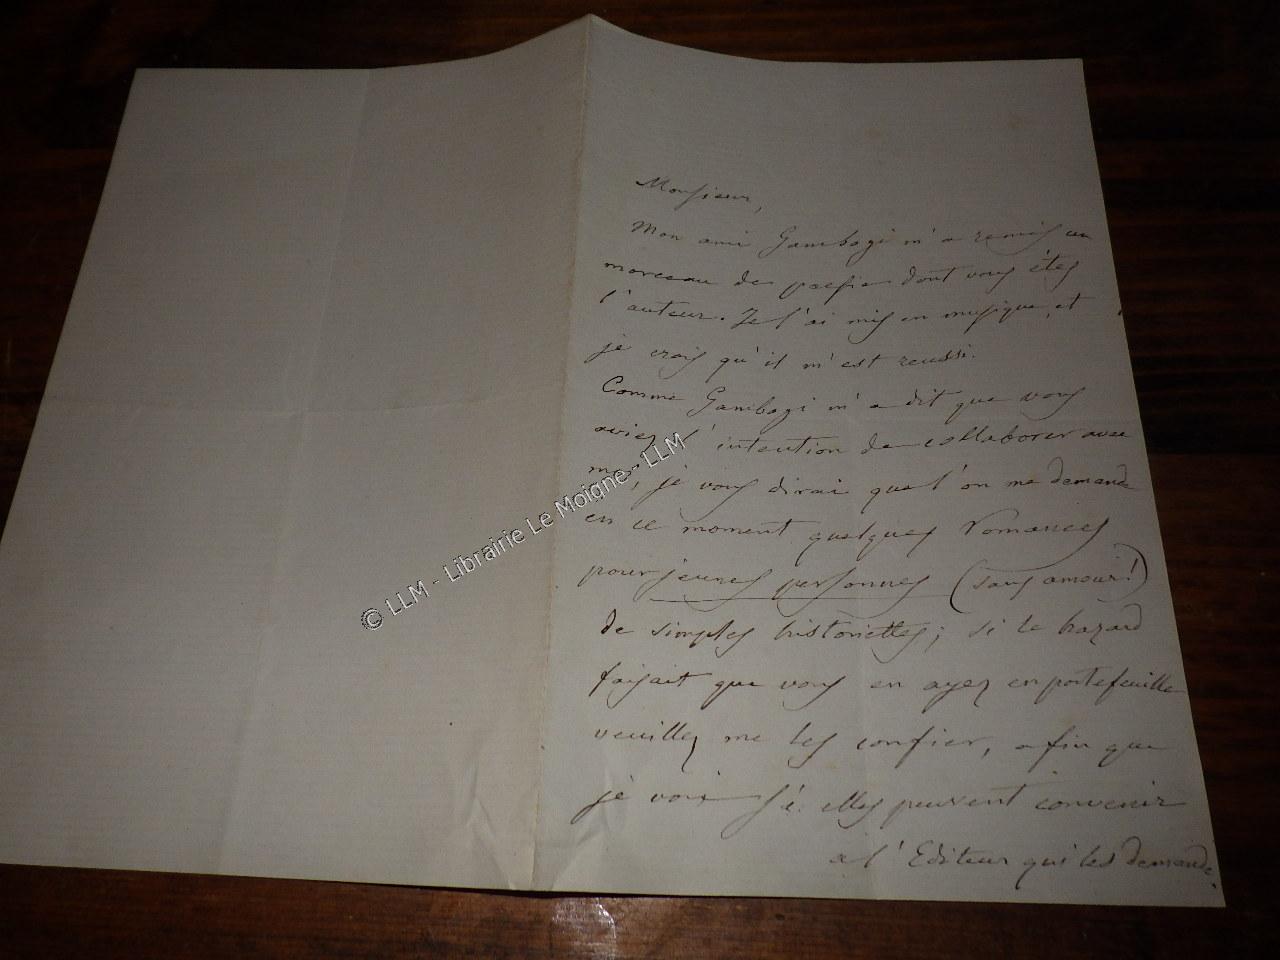 Monsieur,
Mon ami Gambogi m'a remis un
morceau de poesie dont vous êtes
l'auteur. Je l'ai mis en musique, et
je crois qu'il m'est reussi.
Comme Gambogi m'a dit que vous
aviez l'intention de collaborer avec
moi, je vous dirai que l'on me demande
en ce moment quelques romances
pour jeunes personnes (sans amour!)
de simples historiettes; si le hazard
faisait que vous en ayez en portefeuille
veuillez me les confier, afin que
je voie si elles peuvent convenir
a l'Editeur qui les demande.
© LLM - Librairie Le Moigne - LLM